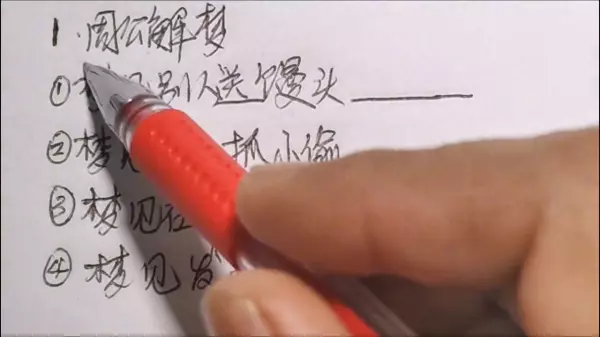 1.周公解梦
① 别人送个馒头
② 梦 抓小偷
③ 梦见在
④ 梦见发